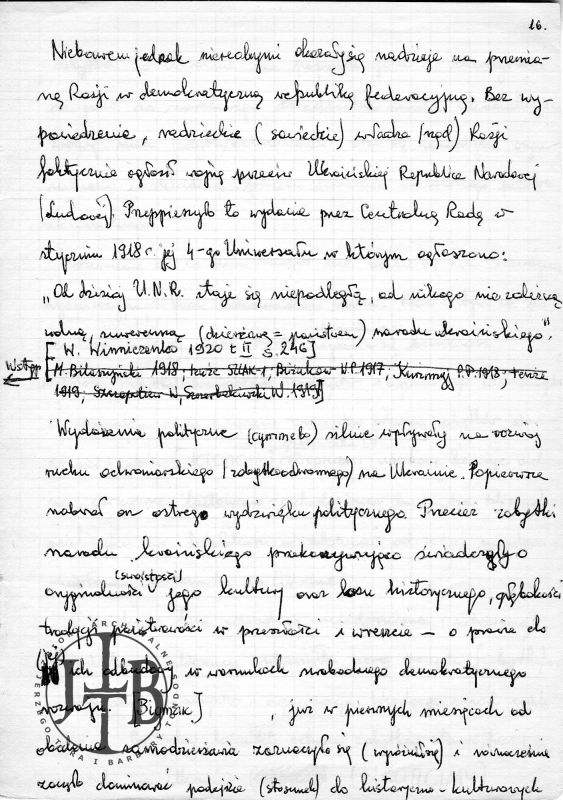 16.
Niebawem jednak nierealnymi okazały się nadzieje na przemia-
nę Rosji w demokratyczną republikę federacyjną. Bez wy-
powiedzenia, radzieckie (sowieckie) władze (rząd) Rosji
faktycznie ogłosił wojnę przeciw Ukraińskiej Republice Narodowej
(Ludowej). Przyspieszyło to wydanie przez Centralną Radę w
styczniu 1918 r. jej 4-go Uniwersału w którym ogłoszono:
„Od dzisiaj U.N.R. staje się niepodległą, od nikogo nie zależną,
wolną, suwerenną (dzierżawą = państwem) narodu ukraińskiego".
[W. Winniczenko 1920 t II s. 246]
Wstęp [M. Biłaszyński 1918, tenże SZLAK-1, 1917, P.P. 1918, tenże
1919, Szczerbakiwski W. 1919]
Wydarzenia polityczne silnie wpływały na rozwój
ruchu ochroniarskiego (zabytkoochronnego) na Ukrainie. Po pierwsze
nabrał on ostrego wydźwięku politycznego. Przecież zabytki
narodu kraińskiego przekonywująco świadczyły o
(swoistości)
oryginalności jego kultury oraz losu historycznego, głębokości
tradycji państwowości w przeszłości i wreszcie – o prawie do
(jej) ich odbudowy w warunkach swobodnego demokratycznego
rozwoju. [ ] , już w pierwszych miesiącach od
obalenia samodzierżawia zaznaczyło się (wyróżniło się) i równocześnie
zaczęło dominować podejście (stosunek) do historyczno-kulturowych
JHTB